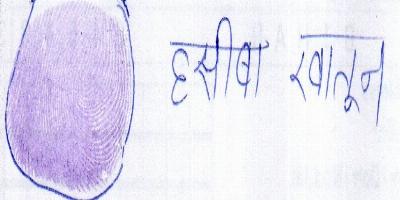 हसीबा खातून